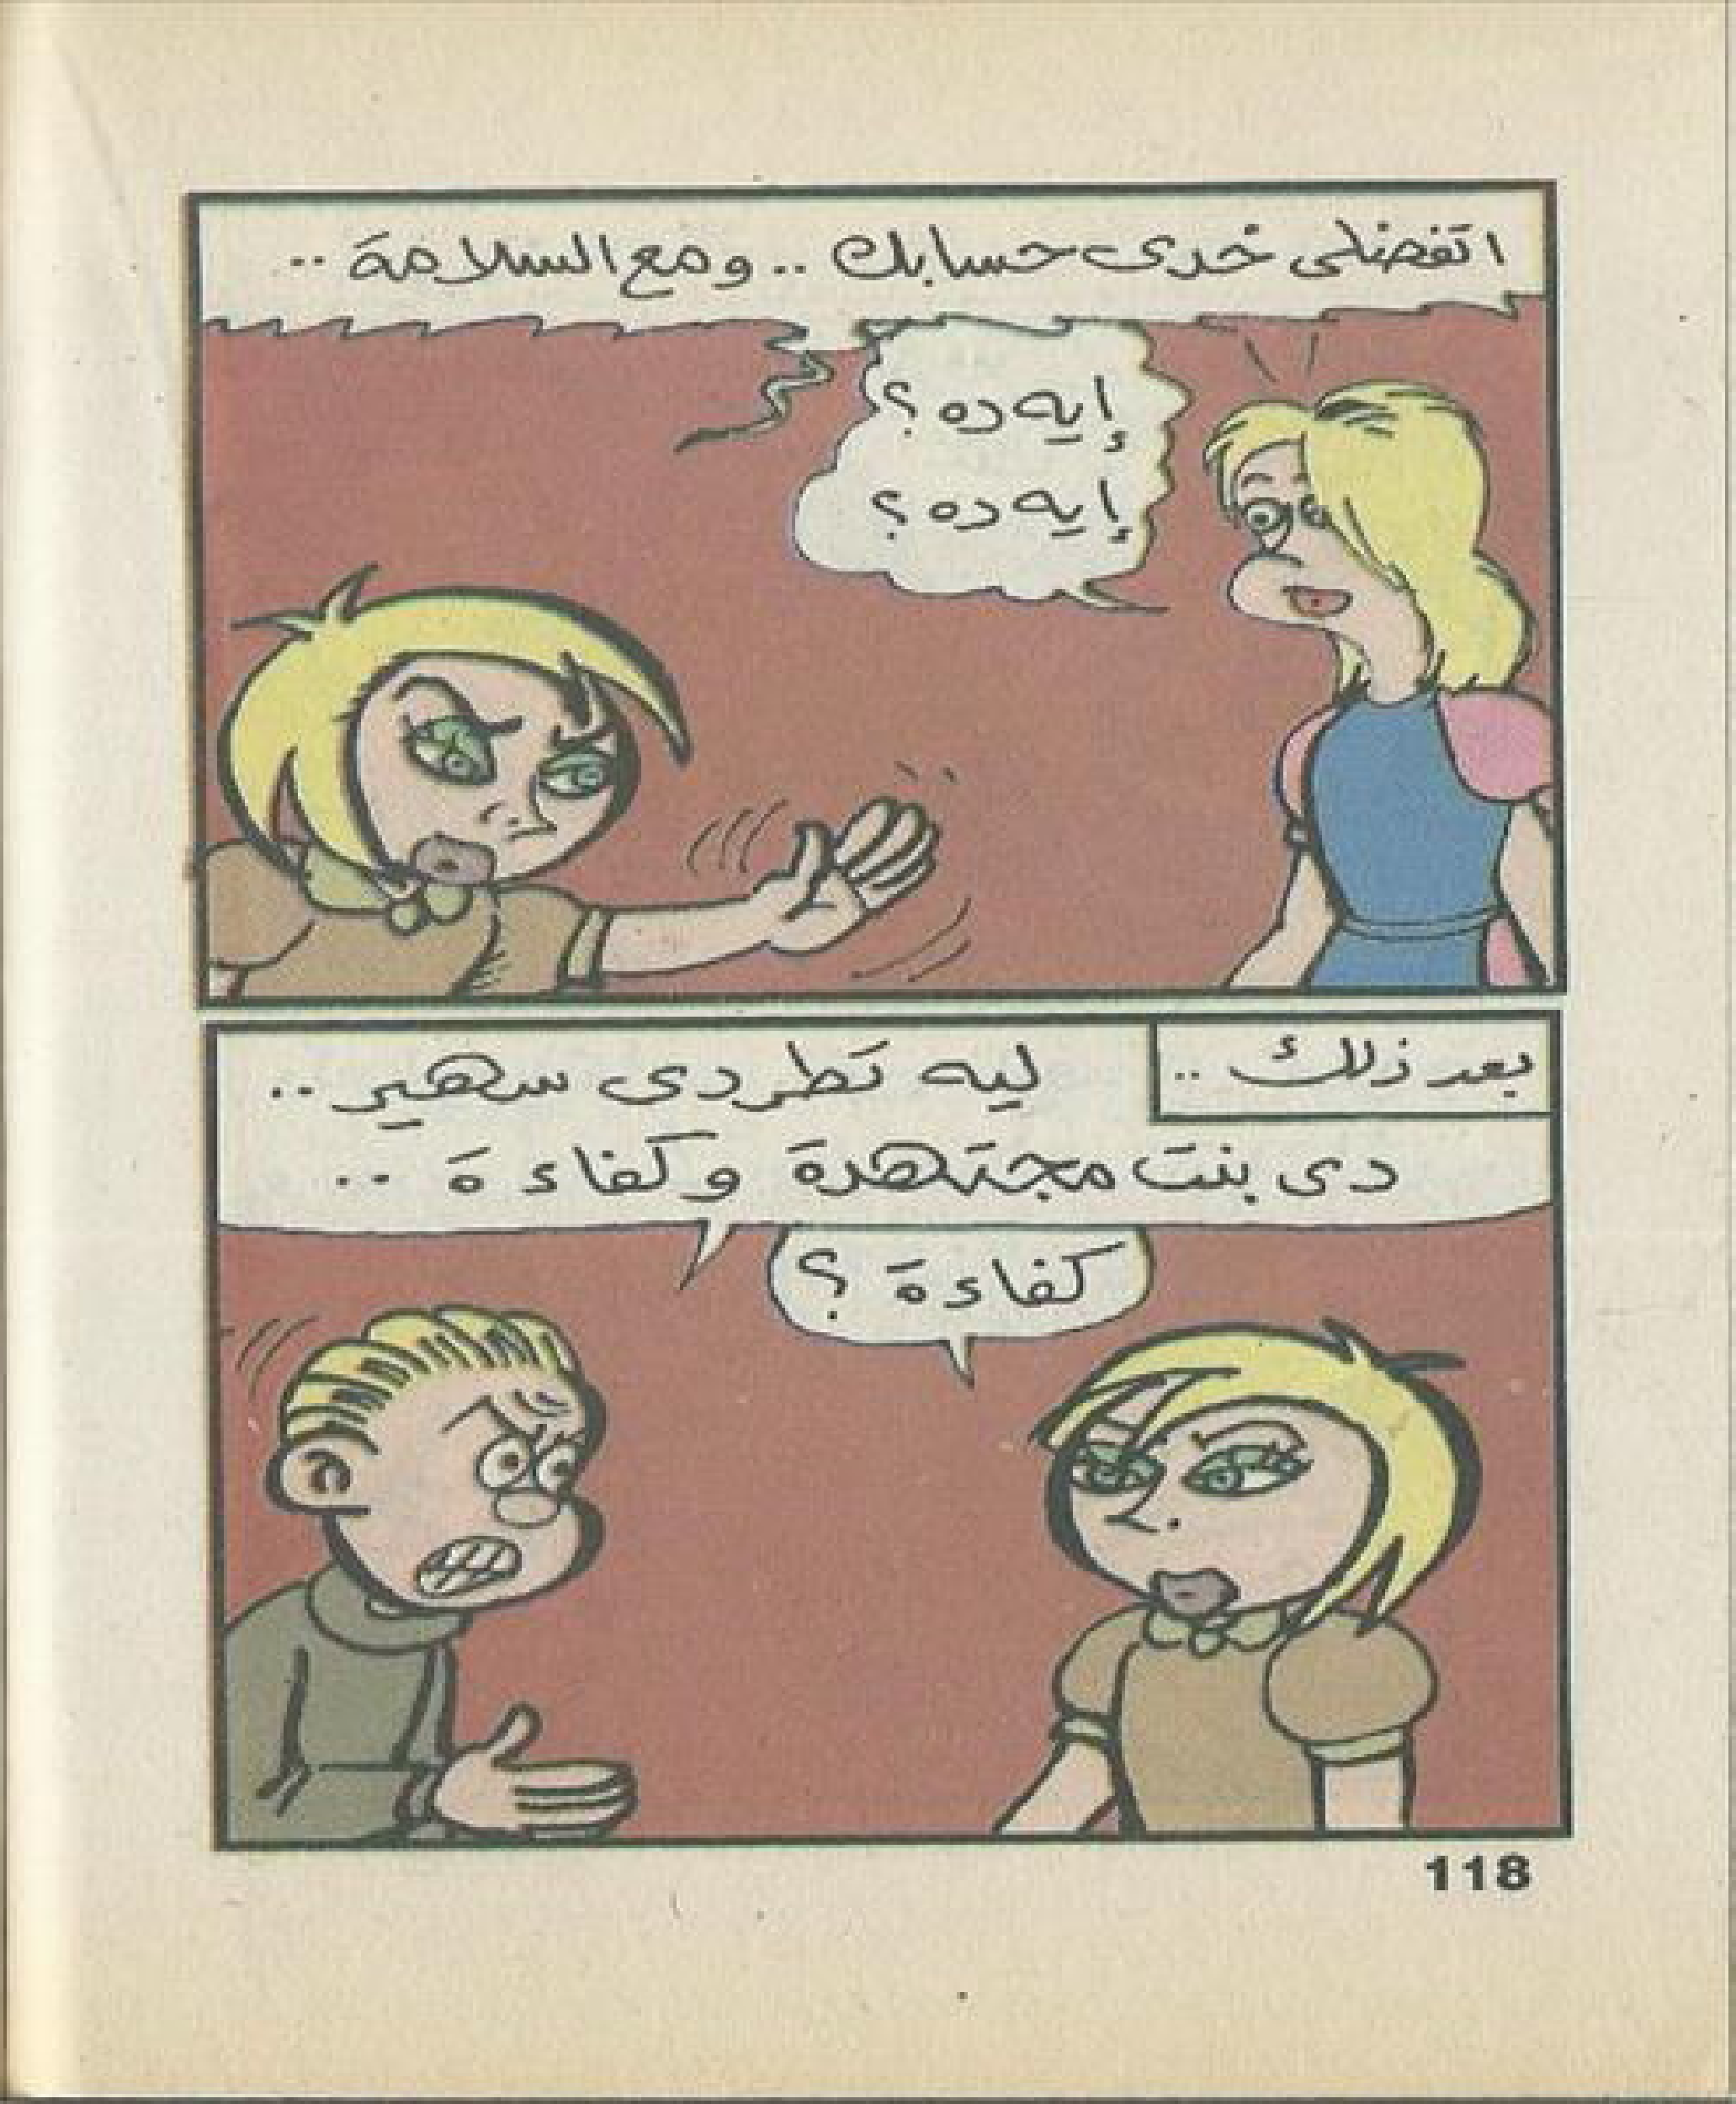 اتفضلى خدى حسابك .. ومع السلامة ..
إيه ده ؟
إيه ده ؟
بعد ذلك ..
ليه تطردى سهير ..
دى بنت مجتهدة وكفاءة ..
كفاءة ؟
118